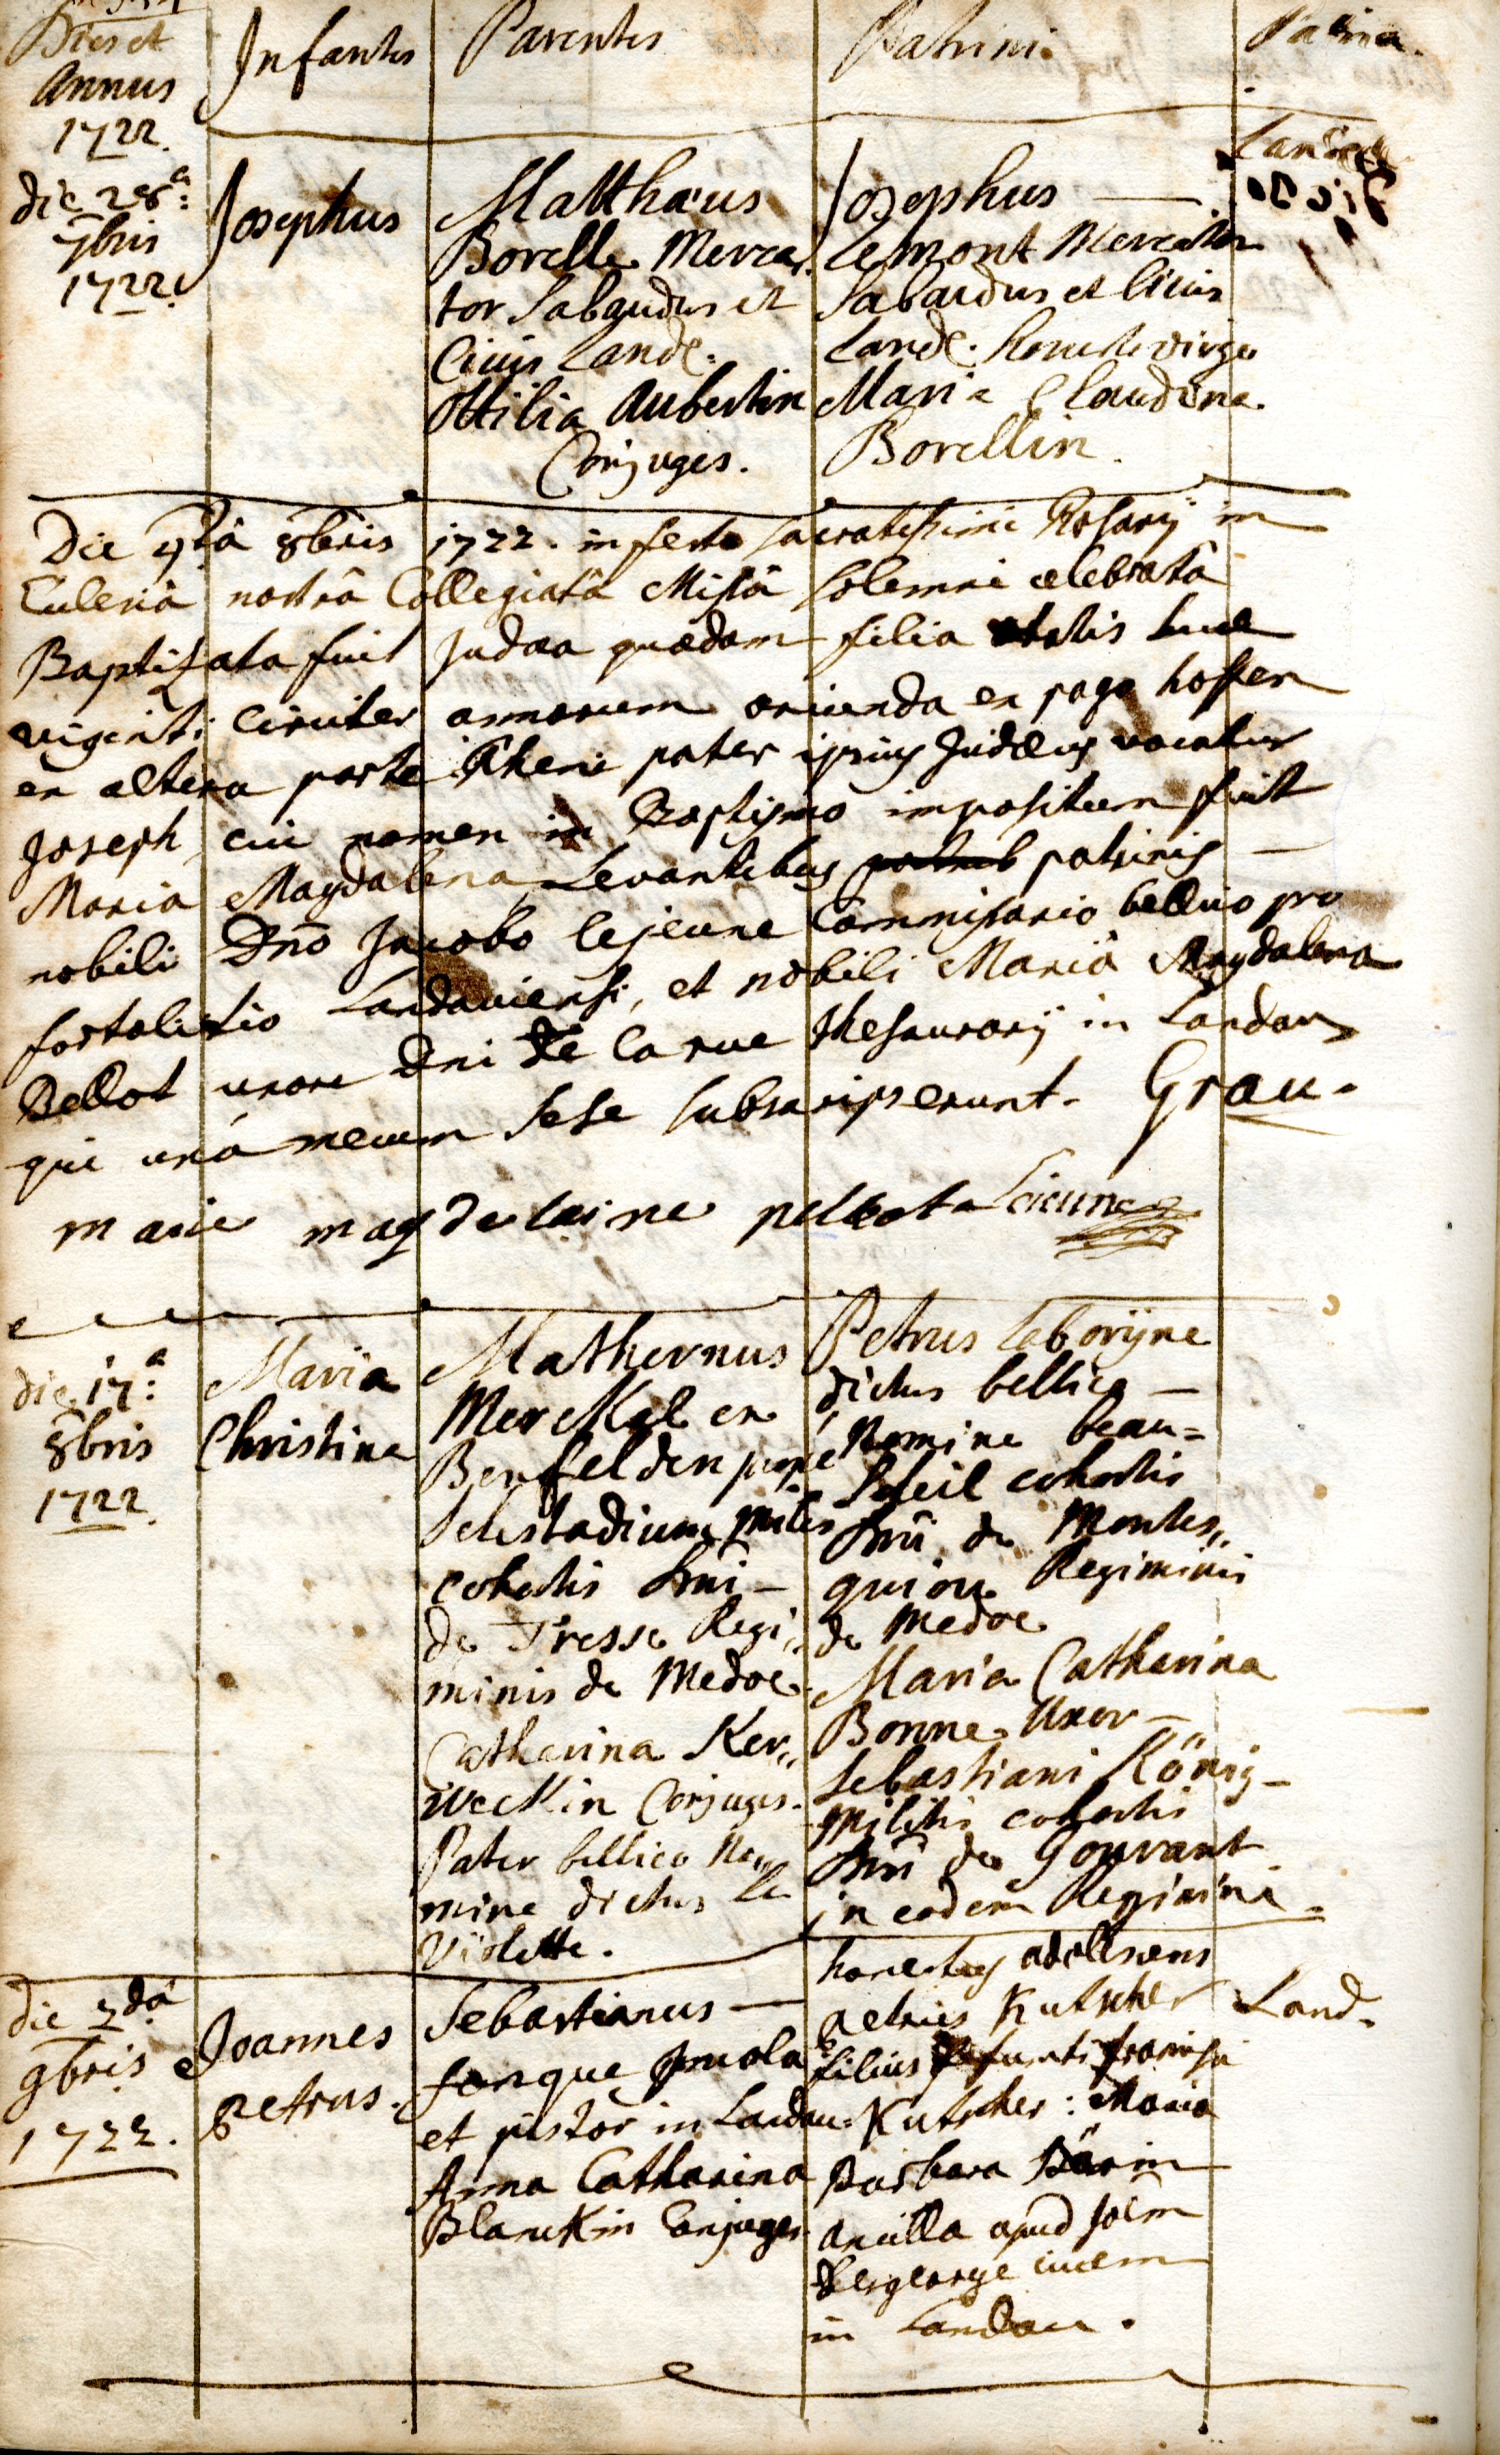 Dies et
Annus
1722.
Infantes
Parentes
Patrini
Patria.
die 28ª:
7bris
1722.
Josephus
Matthæus
Borelle Merca,
tor Sabaudus et
Civis Land:
Ottilia Aubertin
Conjuges.
Josephus —
Lemont Mercator
Sabaudus et Civis
Land: honesta virgo
Maria Claudina
Borellin.
Die 4tâ 8bris 1722. in festo sacratissimi Rosarij in
Eclesiâ nostrâ Collegiatâ Missâ solemni celebratâ
Baptizata fuit Judæa quædam filia ætatis suæ
viginti circiter annorum oriunda ex pago hoffen
ex altera parte Rheni pater ipsius Judæus vocatur
Joseph cui nomen in Baptismo impositum fuit
Maria Magdalena Levantibus patrinis —
nobili Dno Jacobo lejeune Commissario bellico pro
fortalitio Landaviensi, et nobili Mariâ Magdalena
Bellot uxore Dni De la rue thesaurarij in Landau
qui unâ mecum sese subscripserunt. Grau.
marie magdelaine pellot Leieune
die 17ª:
8bris
1722.
Maria
Christina
Mathernus
Merckel ex
Benfelden prope
Selestadium Miles
cohortis Dni —
de Fresse Regi,,
minis de Medoc.
Catharina Ker,,
Weckin Conjuges.
Pater bellico No,,
mine dictus La
Violette.
Petrus Laborijne
dictus bellico —
Nomine beau=
Soleil cohortis
Dni de Montes,,
quiou Regiminis
de Medoc
Maria Catharina
Bonne Uxor —
Sebastiani König —
Militis cohortis
Dni de Gouvant
in eodem Regimine =
die 2dâ
9bris
1722.
Joannes
petrus.
Sebastianus —
fonque Incola
et pistor in Landau.
Anna Catharina
Blanckin Conjuges.
honestus adolescens
petrus Kutscher
filius defuncti francisci
Kutscher: Maria
Barbara Bärin
ancilla apud Joem
in Landau.
Land.